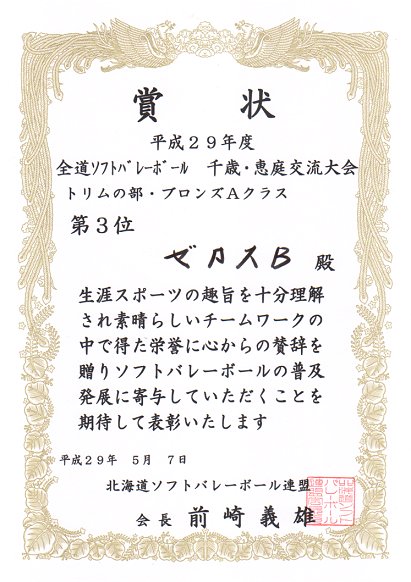 賞状
平成２９年度
全道ｿﾌﾄﾊﾞﾚｰﾎﾞｰﾙ 千歳・恵庭交流大会
トリムの部・ブロンズＡクラス
第３位
ゼロスB 殿
生涯スポーツの趣旨を十分理解
され素晴らしいチームワークの
中で得た栄誉に心からの賛辞を
贈りソフトバレーボールの普及
発展に寄与していただくことを
期待して表彰いたします
平成２９年 ５月 ７日
北海道ソフトバレーボール連盟
会長 前崎義雄